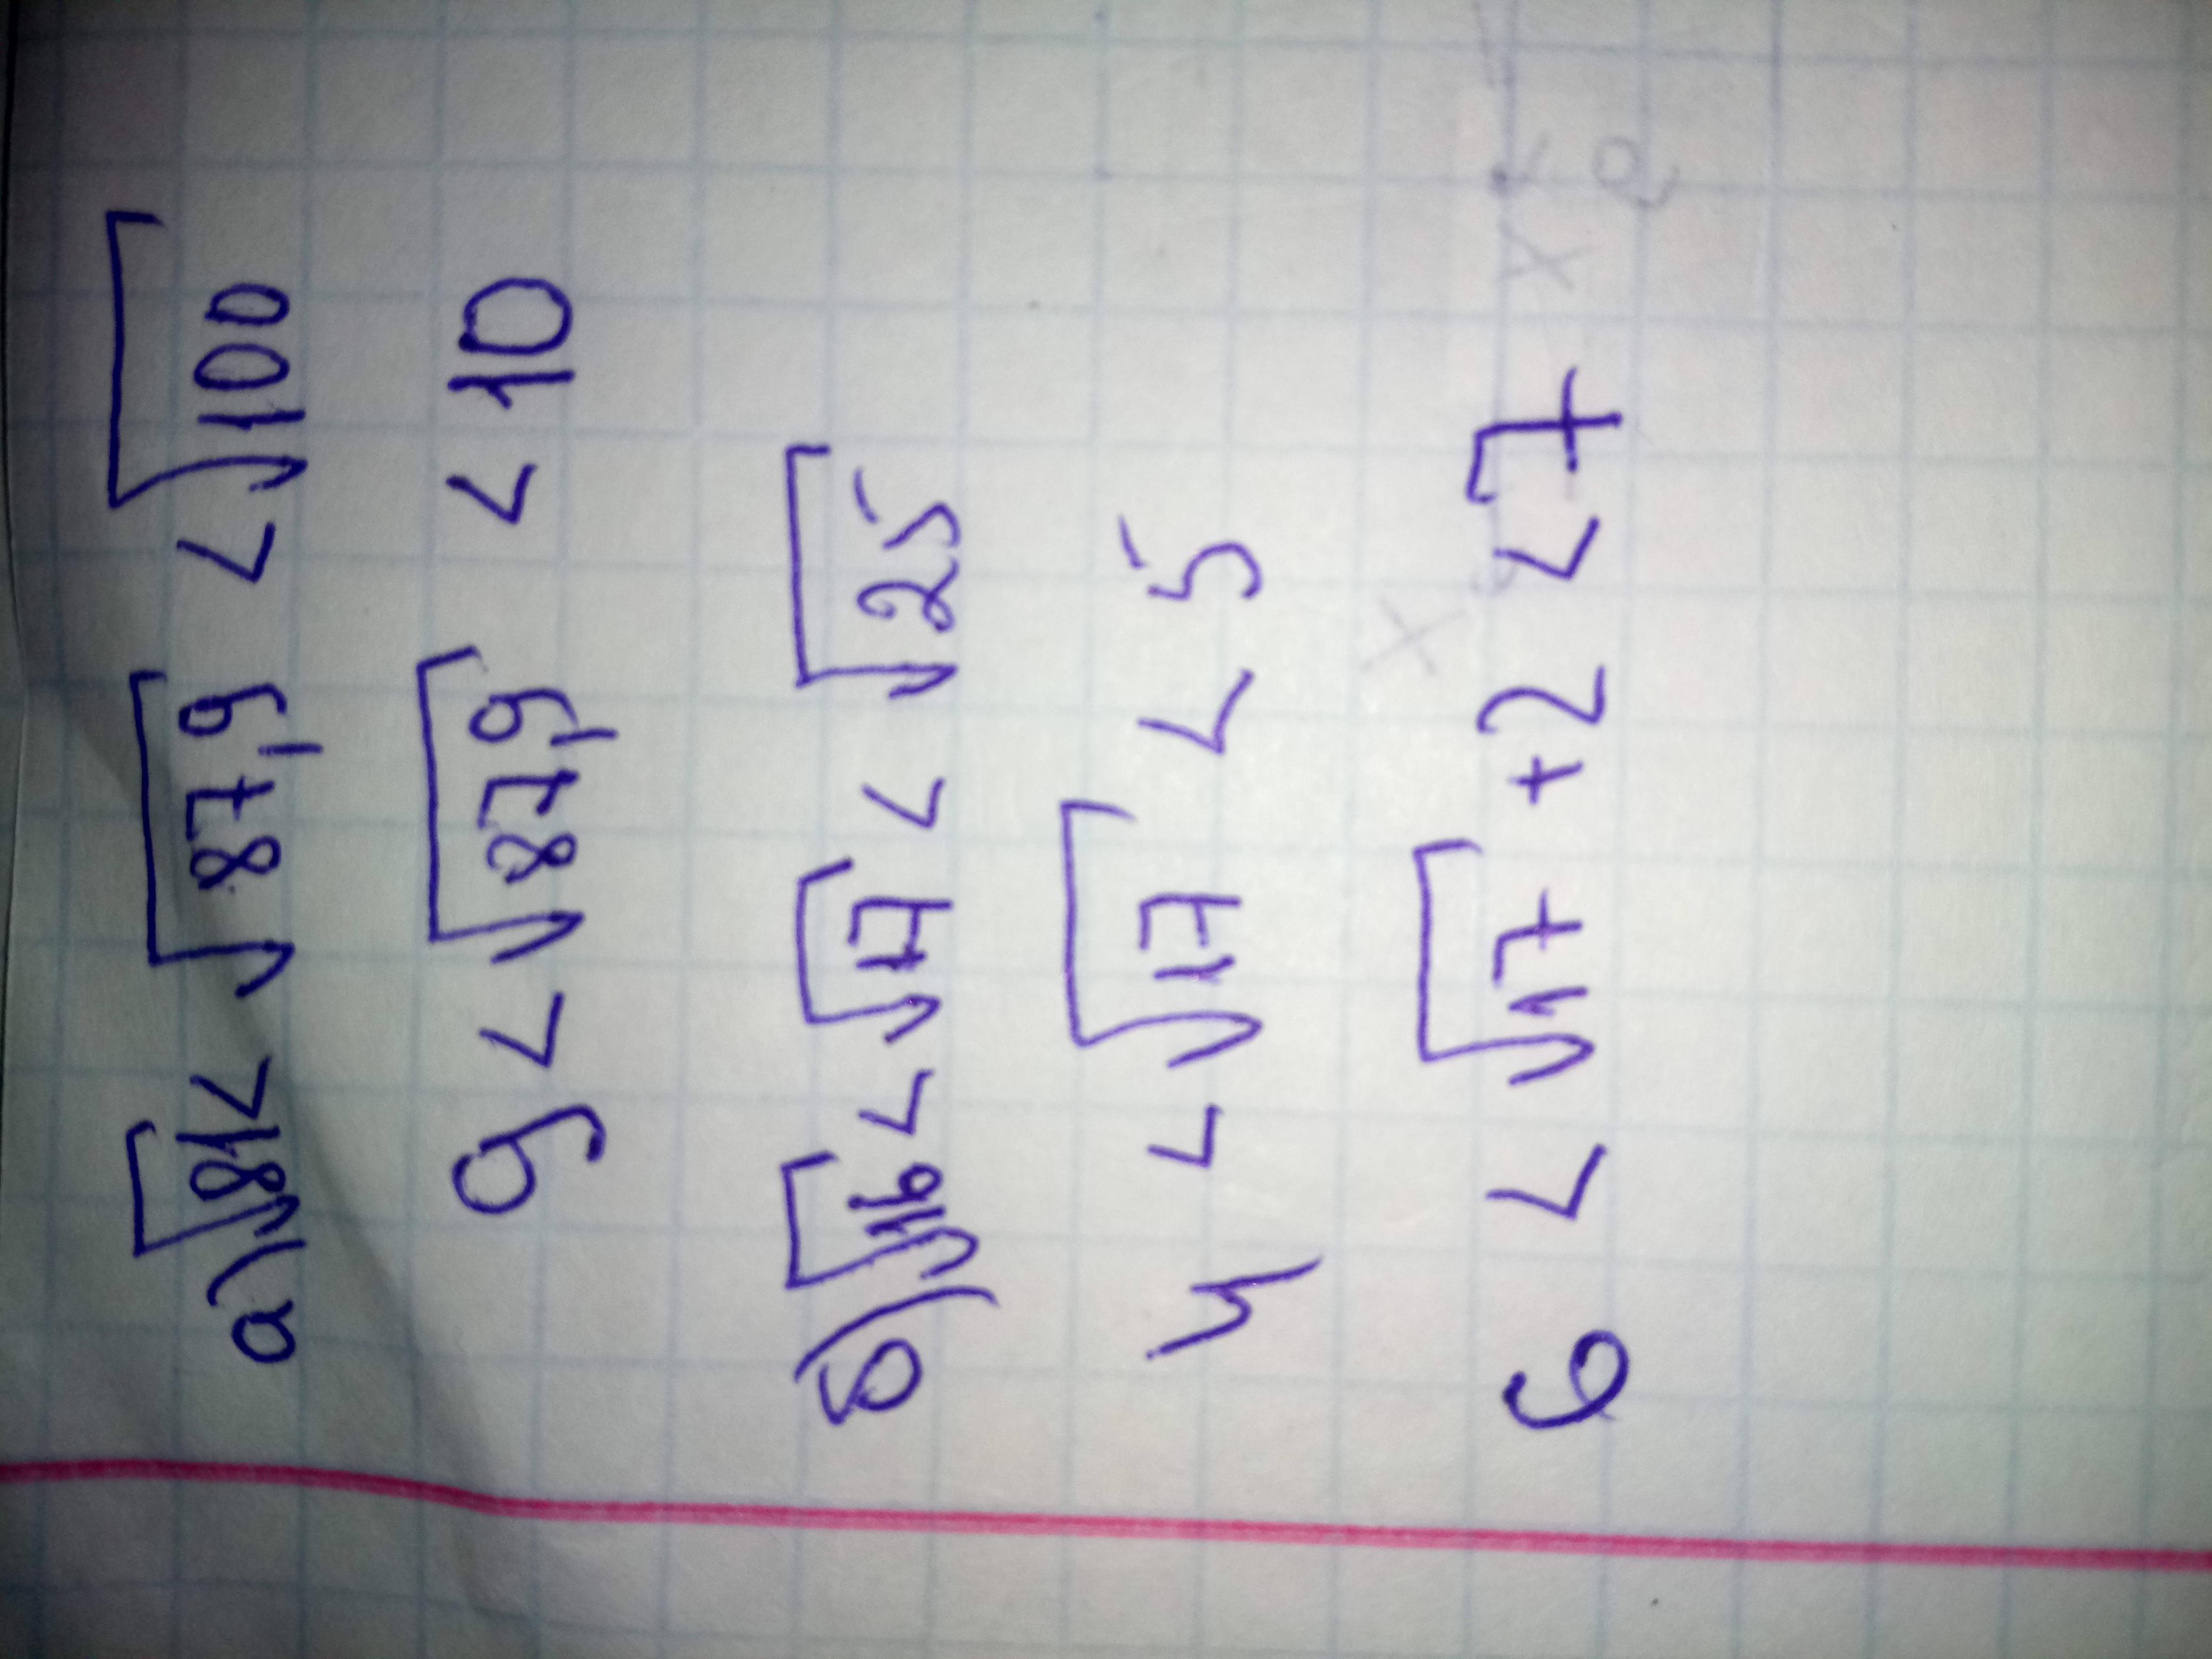 а) √81 < √87,9 < √100
9 < √87,9 < 10
б) √16 < √17 < √25
4 < √17 < 5
6 < √17 + 2 < 7